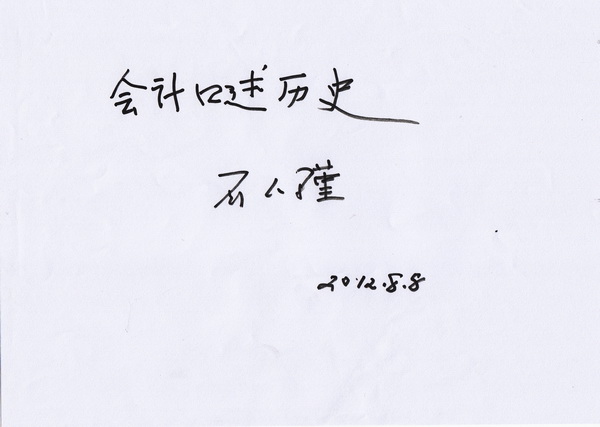 会计口述历史
石人瑾
2012.8.8